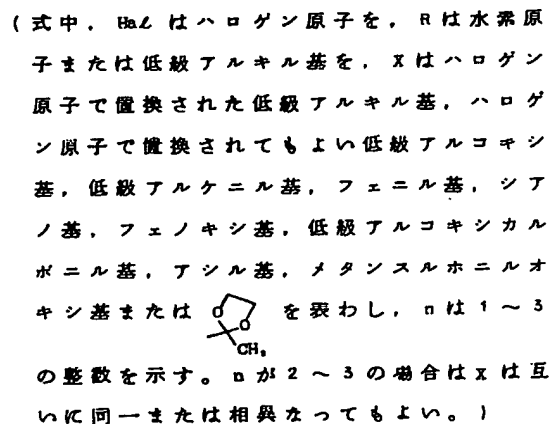 (式中，Halはハロゲン原子を，Rは水素原
子または低級アルキル基を，Xはハロゲン
原子で置換された低級アルキル基，ハロゲ
ン原子で置換されてもよい低級アルコキシ
基，低級アルケニル基，フェニル基，シア
ノ基，フェノキシ基，低級アルコキシカル
ボニル基，アシル基，メタンスルホニルオ
キシ基または O O CH₃ を表わし，nは1〜3
の整数を示す。nが2〜3の場合はXは互
いに同一または相異なってもよい。)